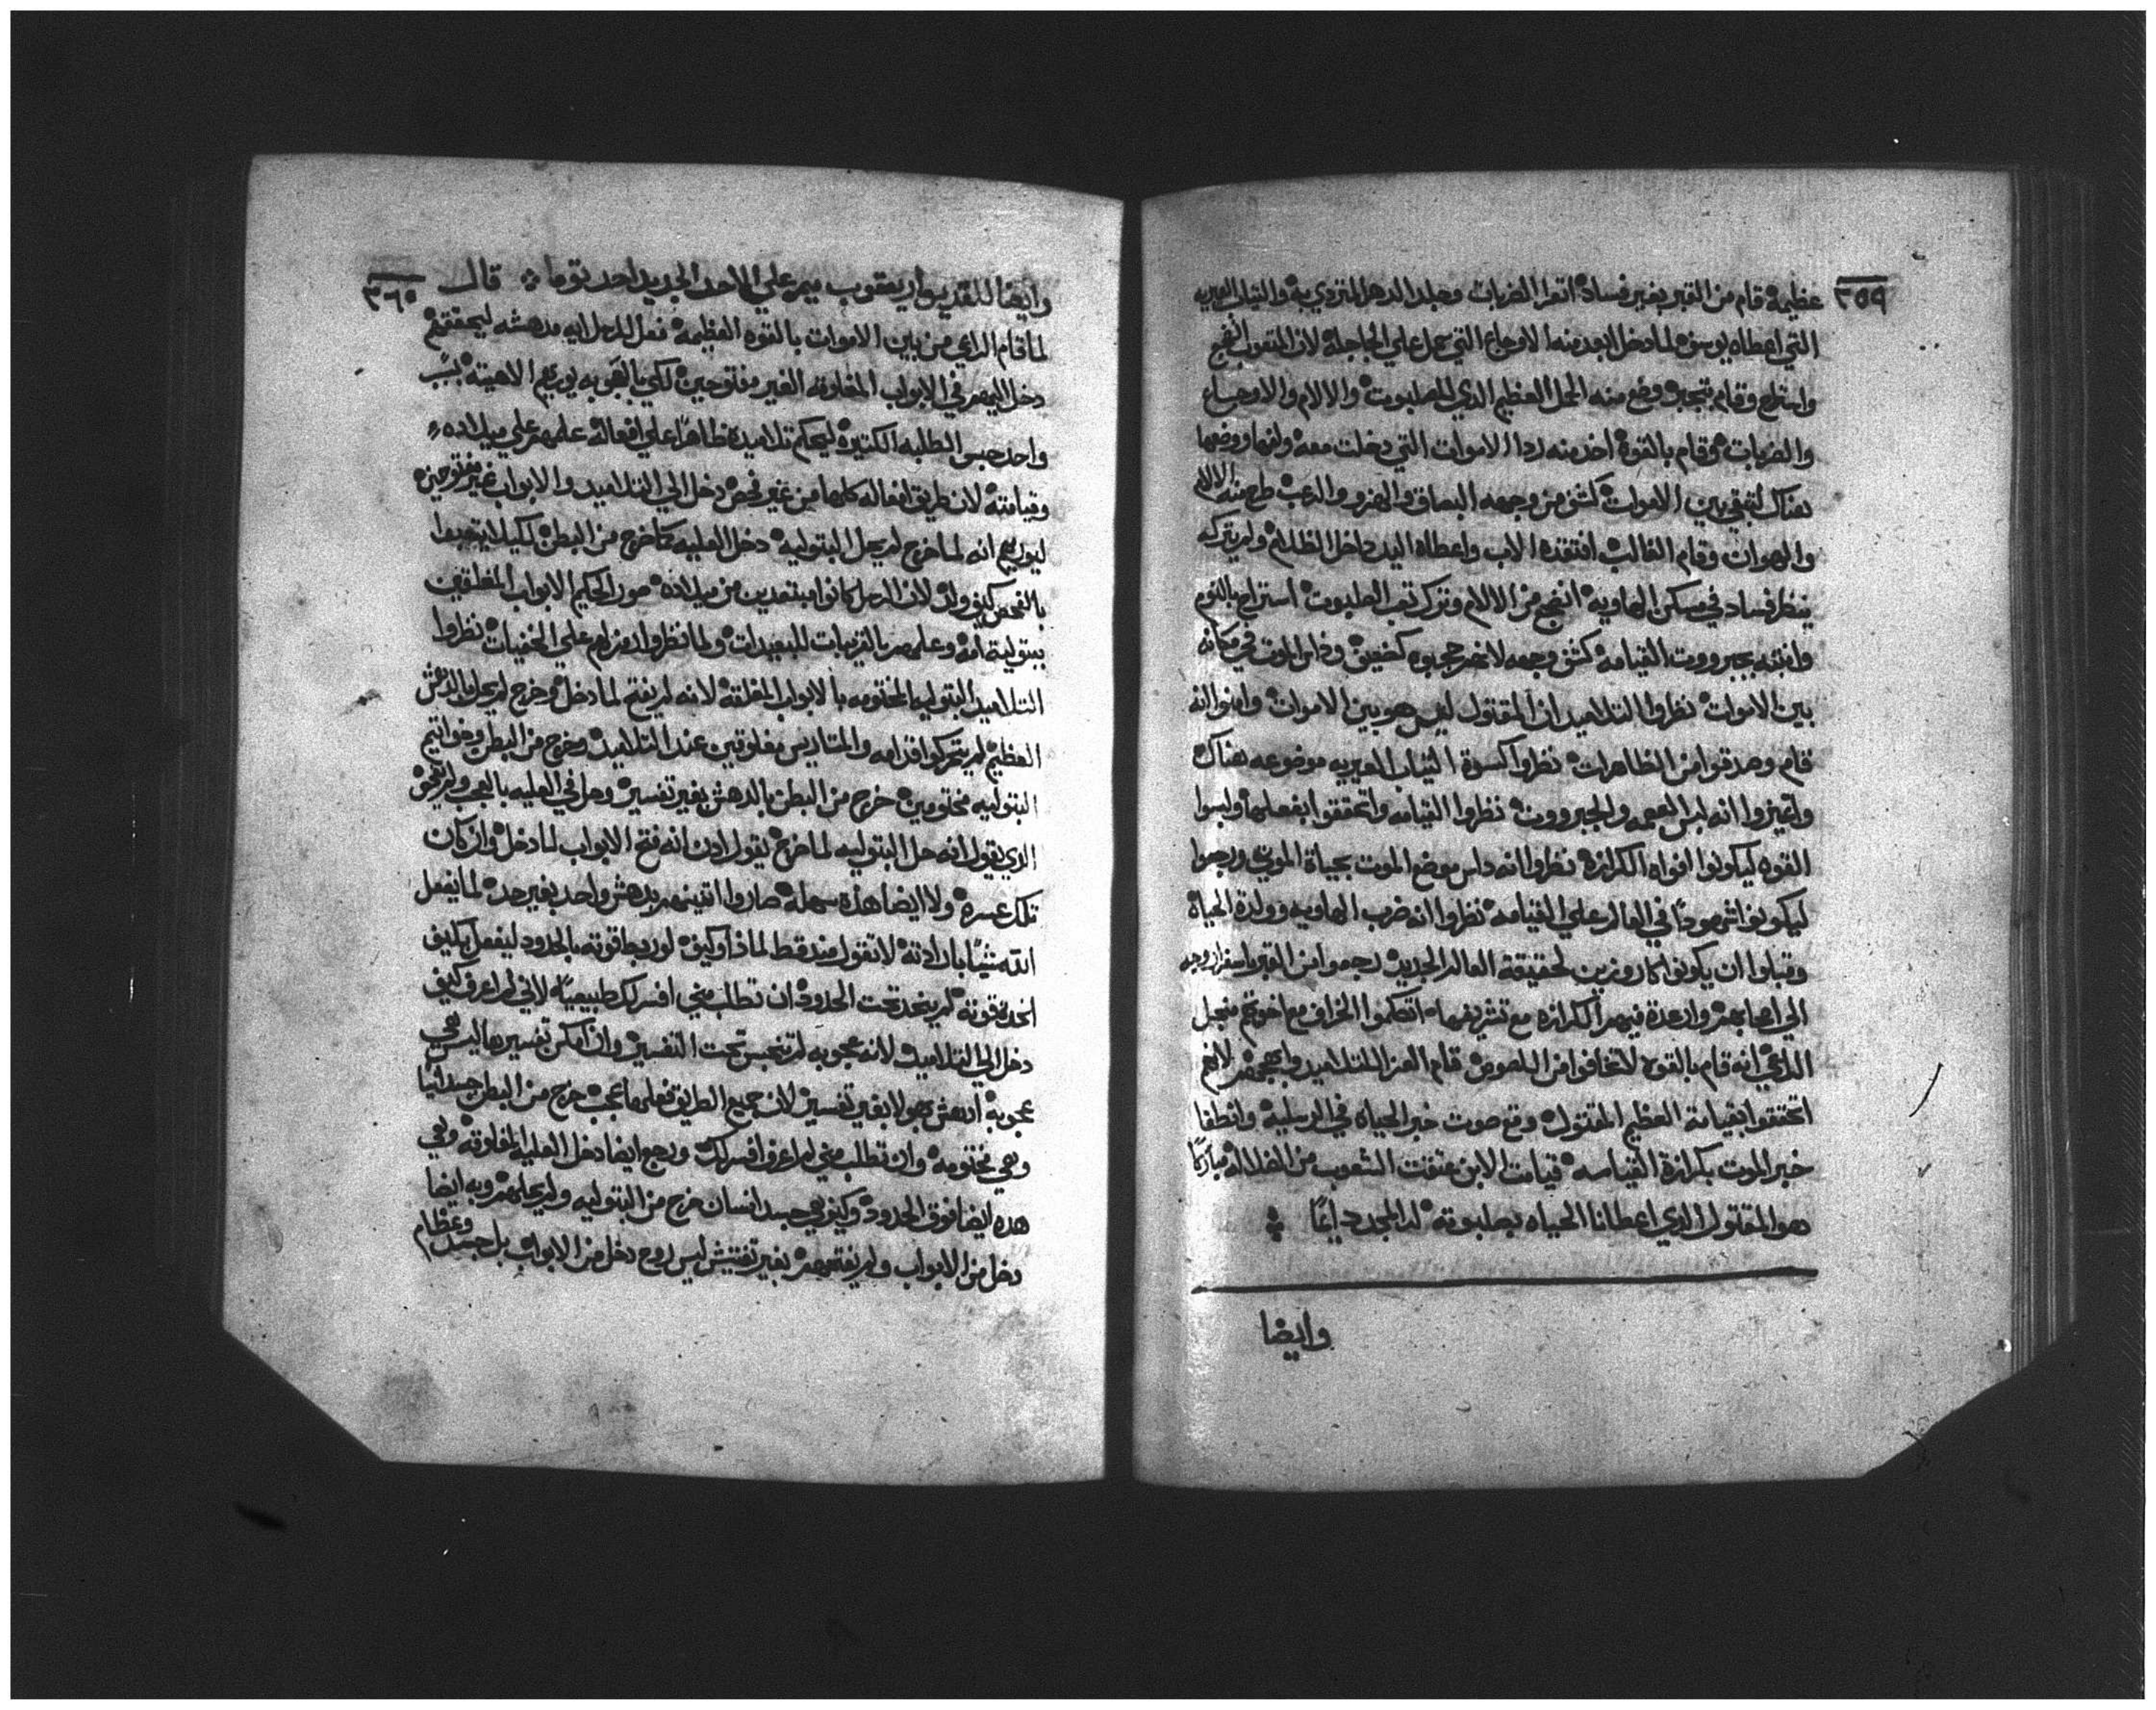 ٣٥٩
عظيمة قام من القبر بغير فساد اتعرا الضربات وجلد الدهل المتردي به والتياب العيريه
التي اعطاه يوسف لما دخل ابعد منه الاوجاع التي حمل علي الجاجلة لان المتعوب انجح
واستراح وقام بتجبر وضع منه الحمل العظيم الذي للصلبوت والالام والاوجاع
والضربات وقام بالقوة اخد منه ردا الاموات التي دخلت معه ولفها ووضعها
هناك لتبقي بين الاموات كشف من وجهه البصاق والهزو والرعب طرح منه الالام
والهوان وقام الغالب افتقده الاب واعطاه اليد داخل الظلام ولم يتركه
ينظر فساد في مسكن الهاويه انجح من الالام وترك تعب الصلبوت استراح بالنوم
وانتبه بجبرووت القيامه كشف وجهه لانه محجوبه كضعيف وداس الموت في مكانه
بين الاموات نظروا التلاميد ان المقتول ليس هو بين الاموات وامنوا انه
قام وصدقوا من الظاهرات نظروا كسوة التياب العيريه موضوعه هناك
واتميزوا انه لبس العجب والجبرووت نظروا القيامه واتحققوا بفعلها ولبسوا
القوه ليكونوا افواه الكرازه نظروا انه داس موضع الموت بحياة الموتي ورجعوا
ليكونوا شهودا في العالم علي القيامه نظروا انه ضرب الهاويه وولدة الحياة
وقبلوا ان يكونوا كاروزين لحقيقة العالم الجديد رجعوا من القبر باسفرار وجد
الي اصحابهم وارعدة فيهم الكرازه مع تشريفها اتكلموا الخراف مع اخوتهم منجل
الراعي انه قام بالقوه لا تخافوا من اللصوص قام العز للتلاميد وابهجهم لانهم
اتحققوا بقيامة العظيم المقتول وقع صوت خبر الحياه في الرسليه وانطفا
خبر الموت بكرازة القيامه قيامت الابن عتقت الشعوب من الضلاله مباركا
هو المقتول الذي اعطانا الحياه بصلبوته له المجد دايما
وايضا
٣٦٠
وايضا للقديس مار يعقوب ميمر علي الاحد الجديد احد توما قال
لما قام الراعي من بين الاموات بالقوه العظيمه فعل للرسل ايه مدهشه ليحققهم
دخل اليهم في الابواب المغلوقه الغير مفتوحين لكي بالعجوبه يوريهم الاهيته بسبب
واحد حبس الطلبه الكتيره ليحكم تلاميده ظاهرا علي افعاله علمهم علي ميلاده
وقيامته لان طريق افعاله كلها من غير فحص دخل الي التلاميد والابواب غير مفتوحين
ليوريهم انه لما خرج لم يحل البتوليه دخل العليه كما خرج من البطن لكيلا يتعبوا
بالفحص كيف ولد لان الرسل كانوا مبتعدين من ميلاده صور الحكيم الابواب المغلقين
ببتولية امه وعلمهم بالقريبات للبعيدات ولما نظروا ادمزهم علي الخفيات نظروا
التلاميد البتوليه المختومه بالابواب المغلقه لانه لم يفتح لما دخل وخرج لم يحل بالدهش
العظيم لم يتحركوا قدامه والمتاريس مغلوقين عند التلاميد وخرج من البطن وخواتيم
البتوليه مختومين خرج من البطن بالدهش بغير تفسير وحل في العليه بالعجب ولم يفحص
الدي يقول انه حل البتوليه لما خرج يقول ادن انه فتح الابواب لما دخل وان كان
تلك عسره ولا ايضا هذه سهله صاروا اتنينهم بدهش واحد بغير حد لما يفعل
الله شيا بارادته لا تقول عنه قط لماذا وكيف لو ربط قوته بالحدود ليفعل بكيف
اتحده قوته لم يتحد تحت الحدود ان تطلب مني افسر لك طبيعيا لاني لم اعرف كيف
دخل الي التلاميد لانه عجوبه لم تحبس تحت التفسير وان امكن تفسيرها ليس هي
عجوبه الدهش هو لا بغير تفسير لان جميع الطريق فعلها عجب خرج من البطن جسدانيا
وهي مختومه وان تطلب مني لم اعرف افسر لك ورجع ايضا دخل العليه المغلوقه وهي
هده ايضا فوق الحدود وكيف هي جسد انسان خرج من البتوليه ولم يحلهم وبه ايضا
دخل من الابواب ولم يفتحهم بغير تفتيش ليس روح دخل من الابواب بل جسد وعظام